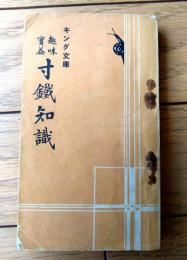 キング文庫
趣味
實益
寸鐵知識